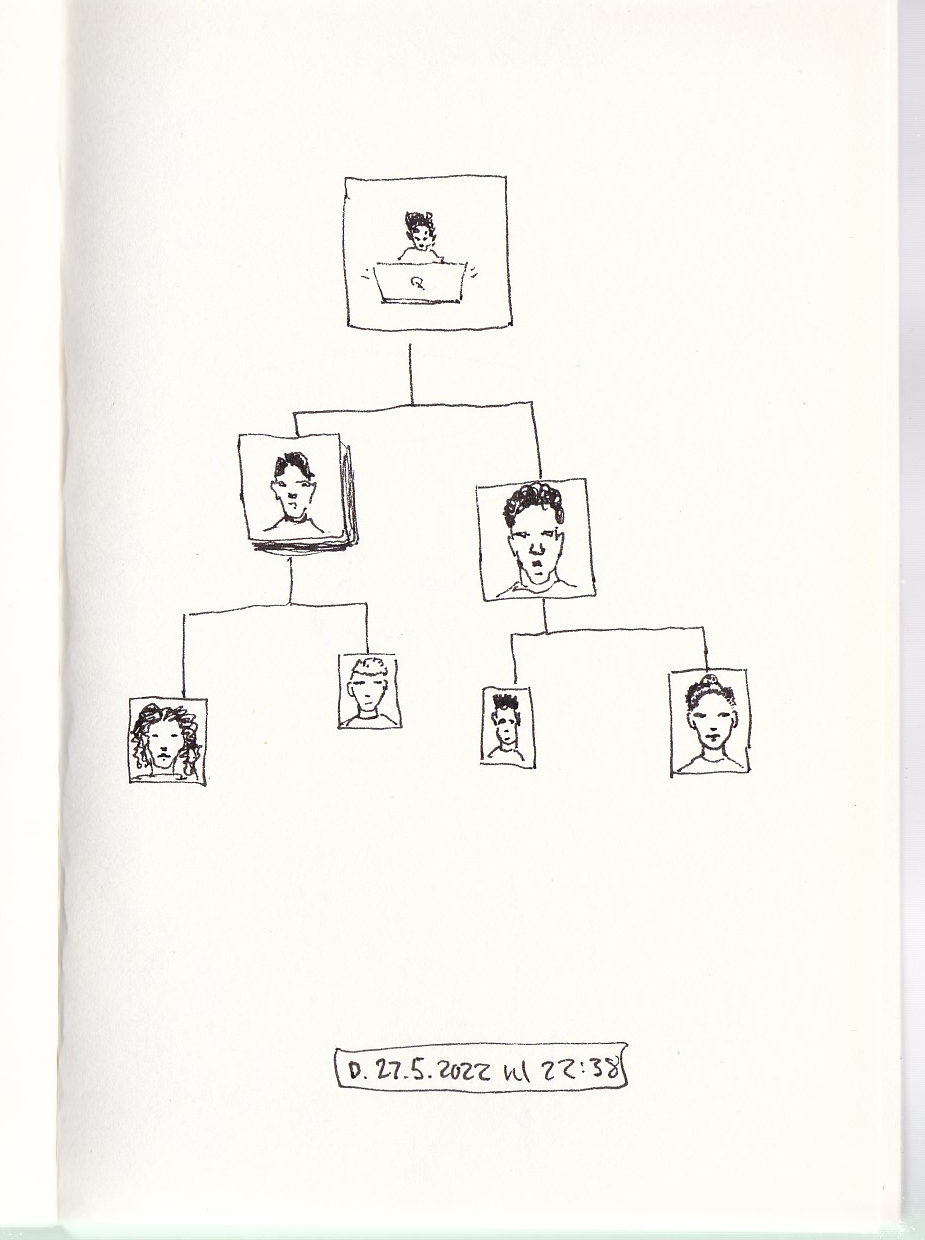 D. 27.5.2022 kl 22:38